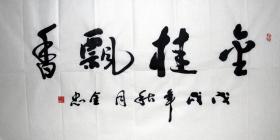 金桂飘香
戊戌年秋月金忠